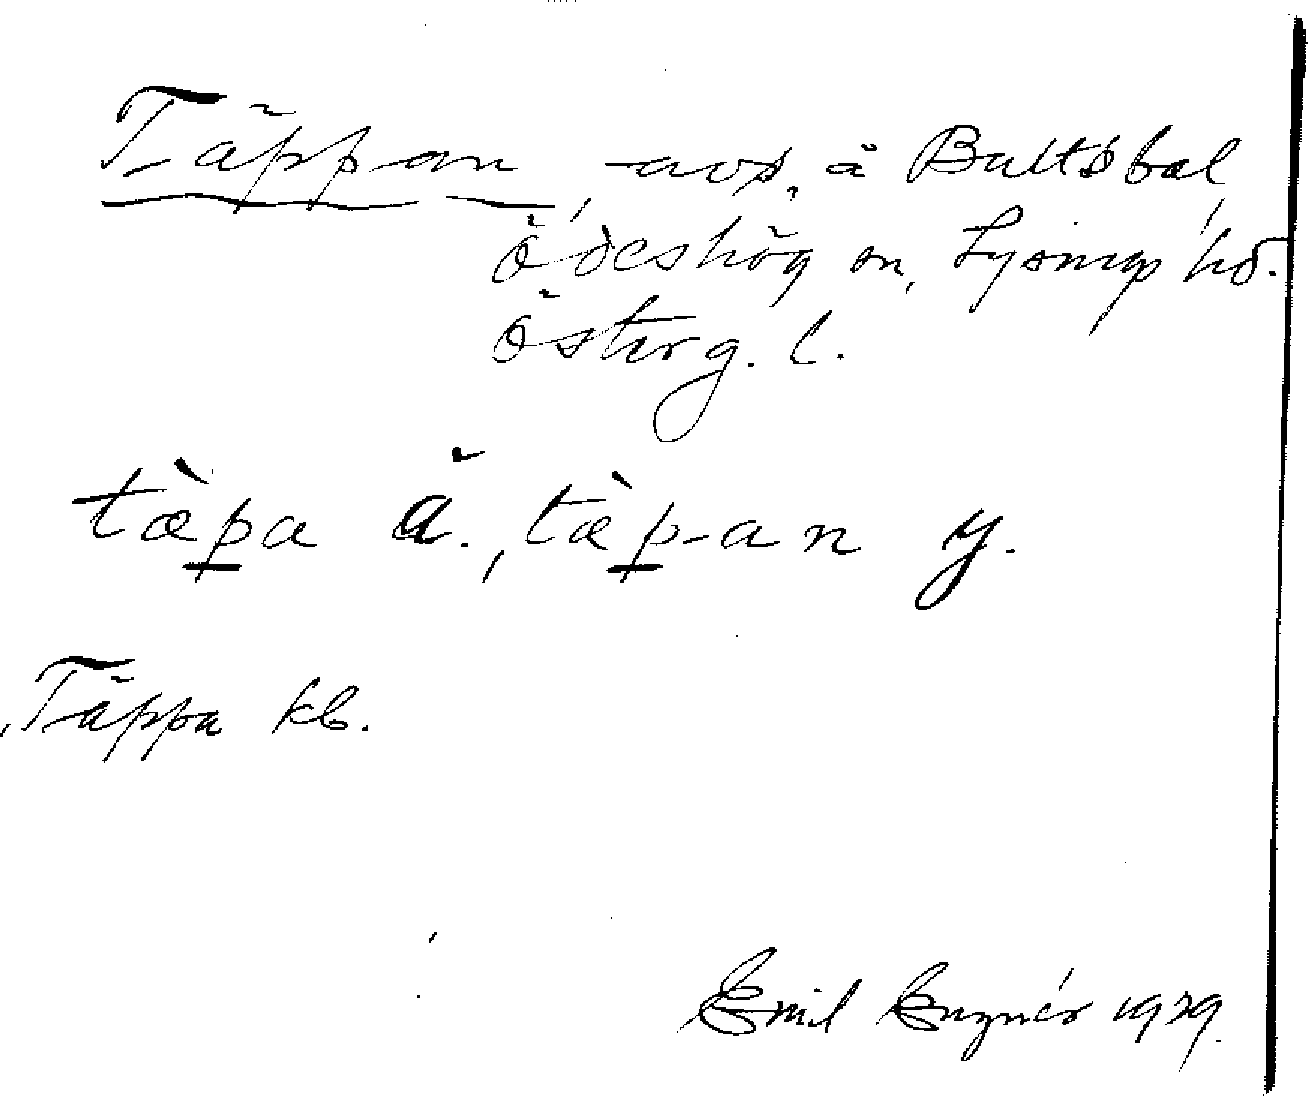 Täppan, avs. å Bultsbol,
Ödeshög sn, Lysings hd.
Österg. l.
tæ̀p̲a ä., tæ̀p̲-an y.
Täppa kb.
Emil Engnér 1929.